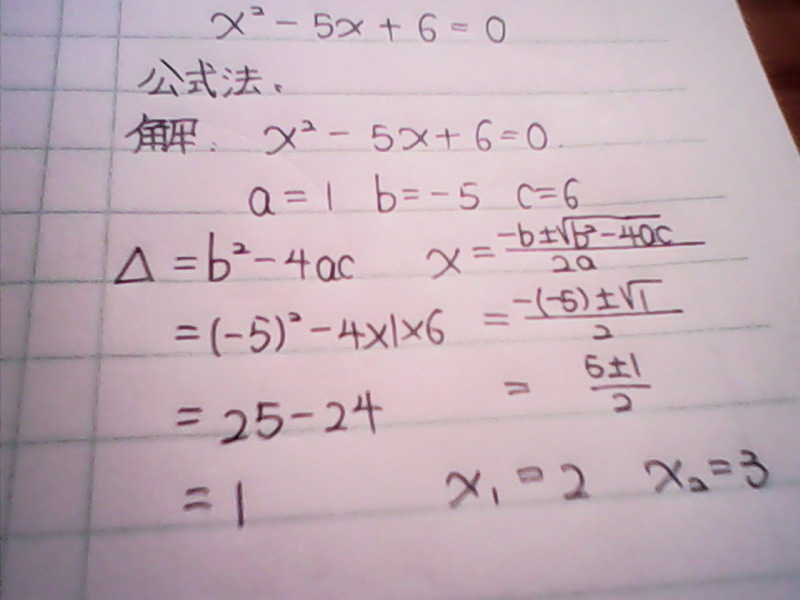 x² - 5x + 6 = 0
公式法.
解: x² - 5x + 6 = 0.
a = 1 b = -5 c = 6
Δ = b² - 4ac x = \frac{-b±\sqrt{b²-4ac}}{2a}
= (-5)² - 4×1×6 = \frac{-(-5)±\sqrt{1}}{2}
= 25 - 24 = \frac{5±1}{2}
= 1 x₁ = 2 x₂ = 3